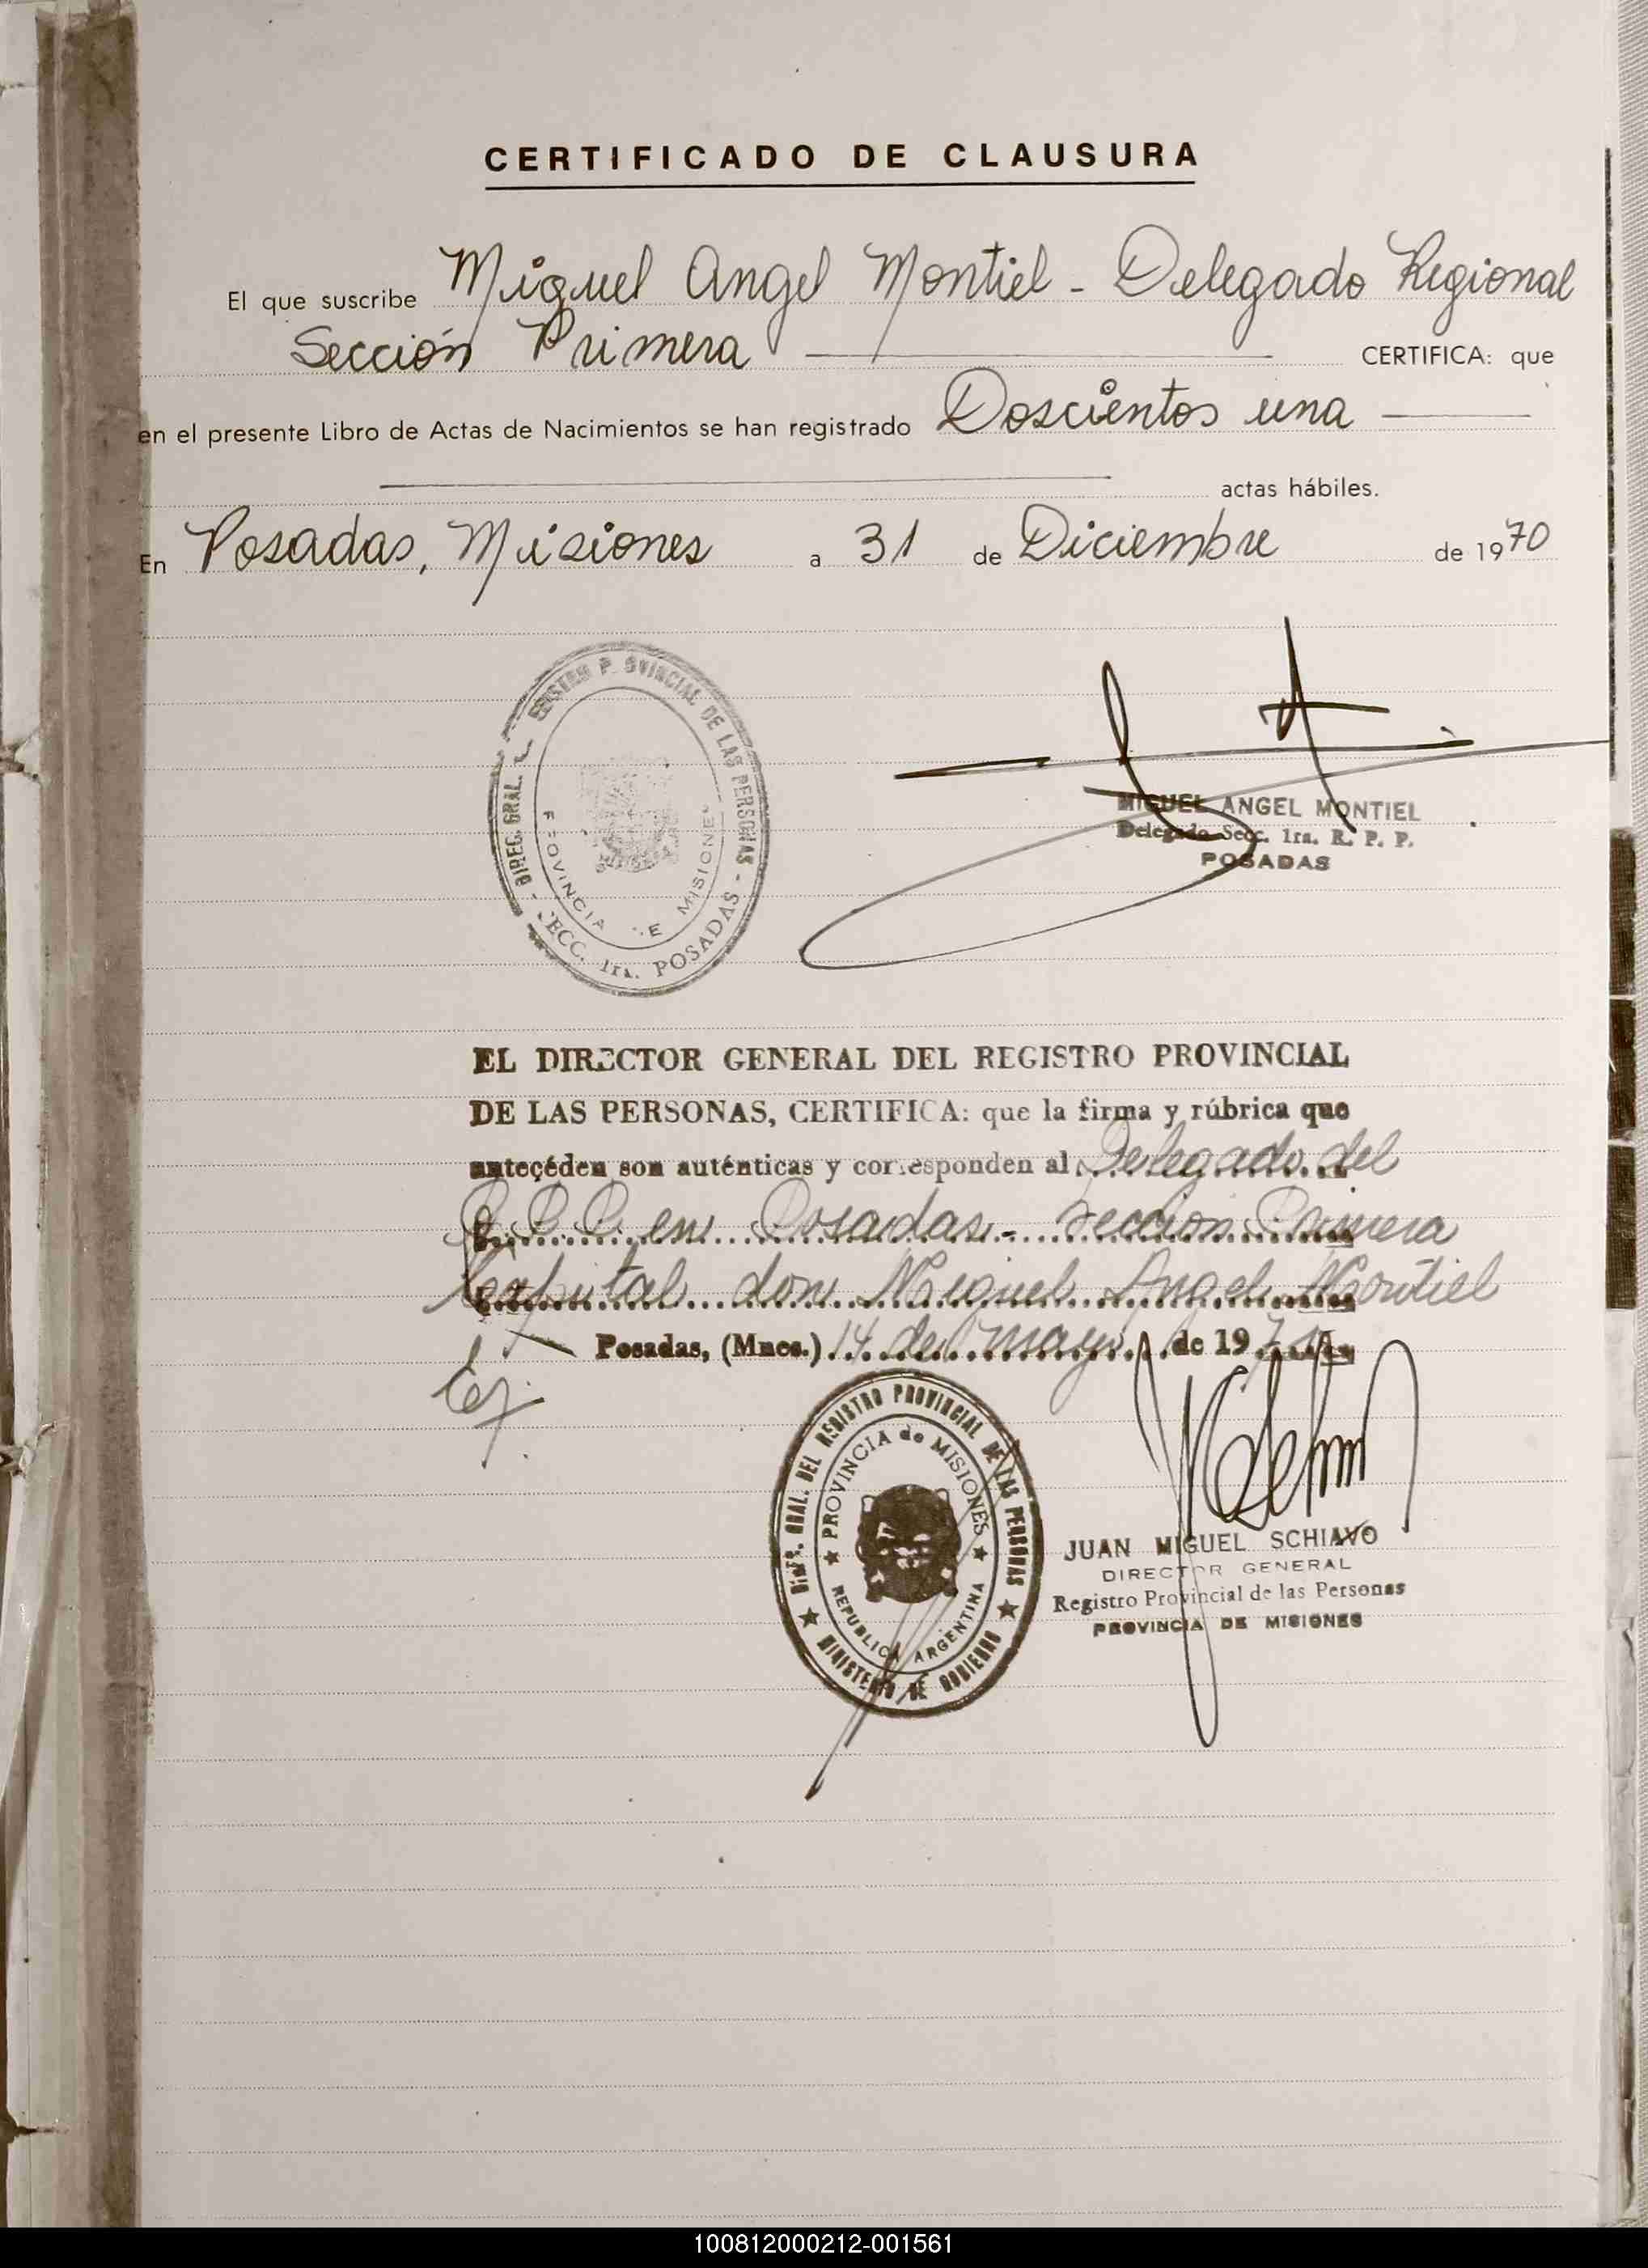 CERTIFICADO DE CLAUSURA
El que suscribe Miguel Angel Montiel - Delegado Regional
Sección Primera CERTIFICA: que
en el presente Libro de Actas de Nacimientos se han registrado Doscientos una
actas hábiles.
En Posadas, Misiones a 31 de Diciembre de 1970
DIREC. GRAL. P OVINCIAL DE LAS PERSONAS - SECC. 1ra. POSADAS -
PROVINCIA DE MISIONES
MIGUEL ANGEL MONTIEL
Delegado Secc. 1ra. R. P. P.
POSADAS
EL DIRECTOR GENERAL DEL REGISTRO PROVINCIAL
DE LAS PERSONAS, CERTIFICA: que la firma y rúbrica que
anteçéden son auténticas y corresponden al Delegado del
R.P.P. en Posadas - Sección Primera
Capital don Miguel Angel Montiel
Posadas, (Mnes.) 14 de mayo de 197
DIREC. GRAL. DEL REGISTRO PROVINCIAL DE LAS PERSONAS
MINISTERIO DE GOBIERNO
PROVINCIA de MISIONES
REPUBLICA ARGENTINA
JUAN MIGUEL SCHIAVO
DIRECTOR GENERAL
Registro Provincial de las Personas
PROVINCIA DE MISIONES
100812000212-001561